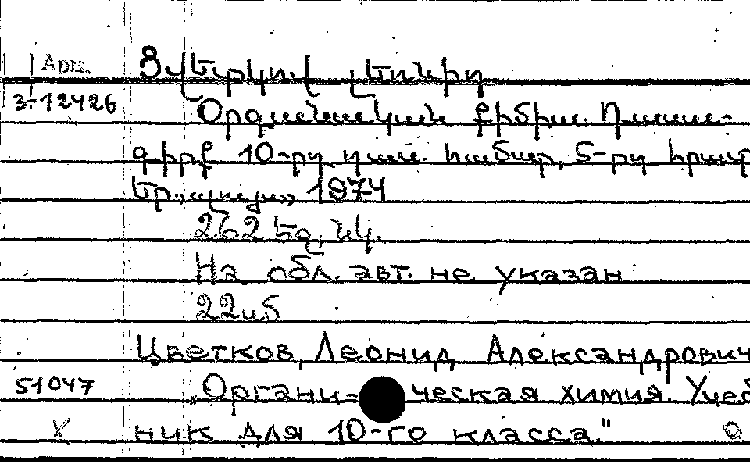 Арм.
Ցվետկով Լեոնիդ
3-12426
Օրգանական քիմիա. Դասա-
գիրք 10-րդ դաս. համար, 5-րդ հրատ
Եր., «Լույս» 1974
262 եջ, նկ.
На обл. авт. не указан
22и5
Цветков, Леонид Александрович
51047
„Органи-ческая химия. Учеб
ник для 10-го класса."